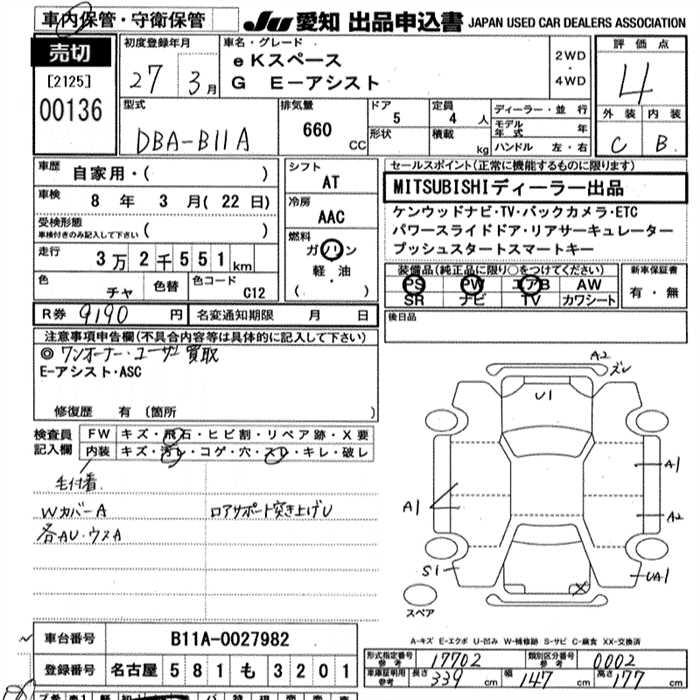 車内保管・守衛保管
JU 愛知 出品申込書 JAPAN USED CAR DEALERS ASSOCIATION
売切
[2125]
00136
初度登録年月
27 3月
車名・グレード
eKスペース
G E-アシスト
2WD
・
4WD
評価点
4
外装 内装
C B
型式
DBA-B11A
排気量
660 CC
ドア
5
形状
定員
4 人
積載 kg
ディーラー・並行
モデル年式 年
ハンドル 左・右
車歴
自家用・( )
車検
8 年 3 月 ( 22 日)
受検形態
車検付きのみ記入して下さい ( )
走行
3万2千551km
色
チャ
色替
色コード
C12
シフト
AT
冷房
AAC
燃料
ガソリン
軽・油
( )
セールスポイント(正常に機能するものに限ります)
MITSUBISHIディーラー出品
ケンウッドナビ・TV・バックカメラ・ETC
パワースライドドア・リアサーキュレーター
プッシュスタートスマートキー
装備品(純正品に限り○をつけてください)
PS PW エアB AW
SR ナビ TV カワシート
新車保証書
有・無
R券 9190 円 名変通知期限 月 日
後日品
注意事項申告欄(不具合内容等は具体的に記入して下さい)
◎ワンオーナー・ユーザー買取
E-アシスト・ASC
修復歴 有 (箇所 )
検査員
記入欄
FW キズ・飛石・ヒビ割・リペア跡・X要
内装 キズ・汚レ・コゲ・穴・スレ・キレ・破レ
毛付着
Wカバー A
ロアサポート突き上げU
各AU・ウスA
A2
ズレ
U1
A1
A1
A2
S1
UA1
X
スペア
A-キズ E-エクボ U-凹み W-補修跡 S-サビ C-腐食 XX-交換済
車台番号 B11A-0027982
登録番号 名古屋 581 も 3201
形式指定番号
参考
17702
類別区分番号
参考
0002
車庫証明用
参考
長さ 339 cm 幅 147 cm 高さ 177 cm